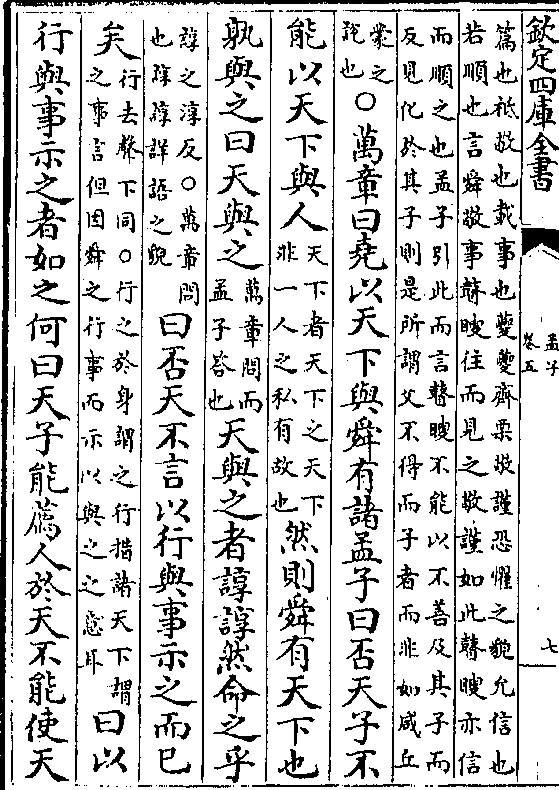 欽定四庫全書
孟子
卷五
七
篇也祗敬也載事也夔夔齊栗敬謹恐懼之貌允信也
若順也言舜敬事瞽瞍往而見之敬謹如此瞽瞍亦信
而順之也孟子引此而言瞽瞍不能以不善及其子而
反見化於其子則是所謂父不得而子者而非如咸丘
蒙之說也○萬章曰堯以天下與舜有諸孟子曰否天子不
能以天下與人天下者天下之天下非一人之私有故也然則舜有天下也
孰與之曰天與之萬章問而孟子答也天與之者諄諄然命之乎
諄之淳反○萬章問也諄諄詳語之貌曰否天不言以行與事示之而已
矣行去聲下同○行之於身謂之行措諸天下謂之事言但因舜之行事而示以與之之意耳曰以
行與事示之者如之何曰天子能薦人於天不能使天